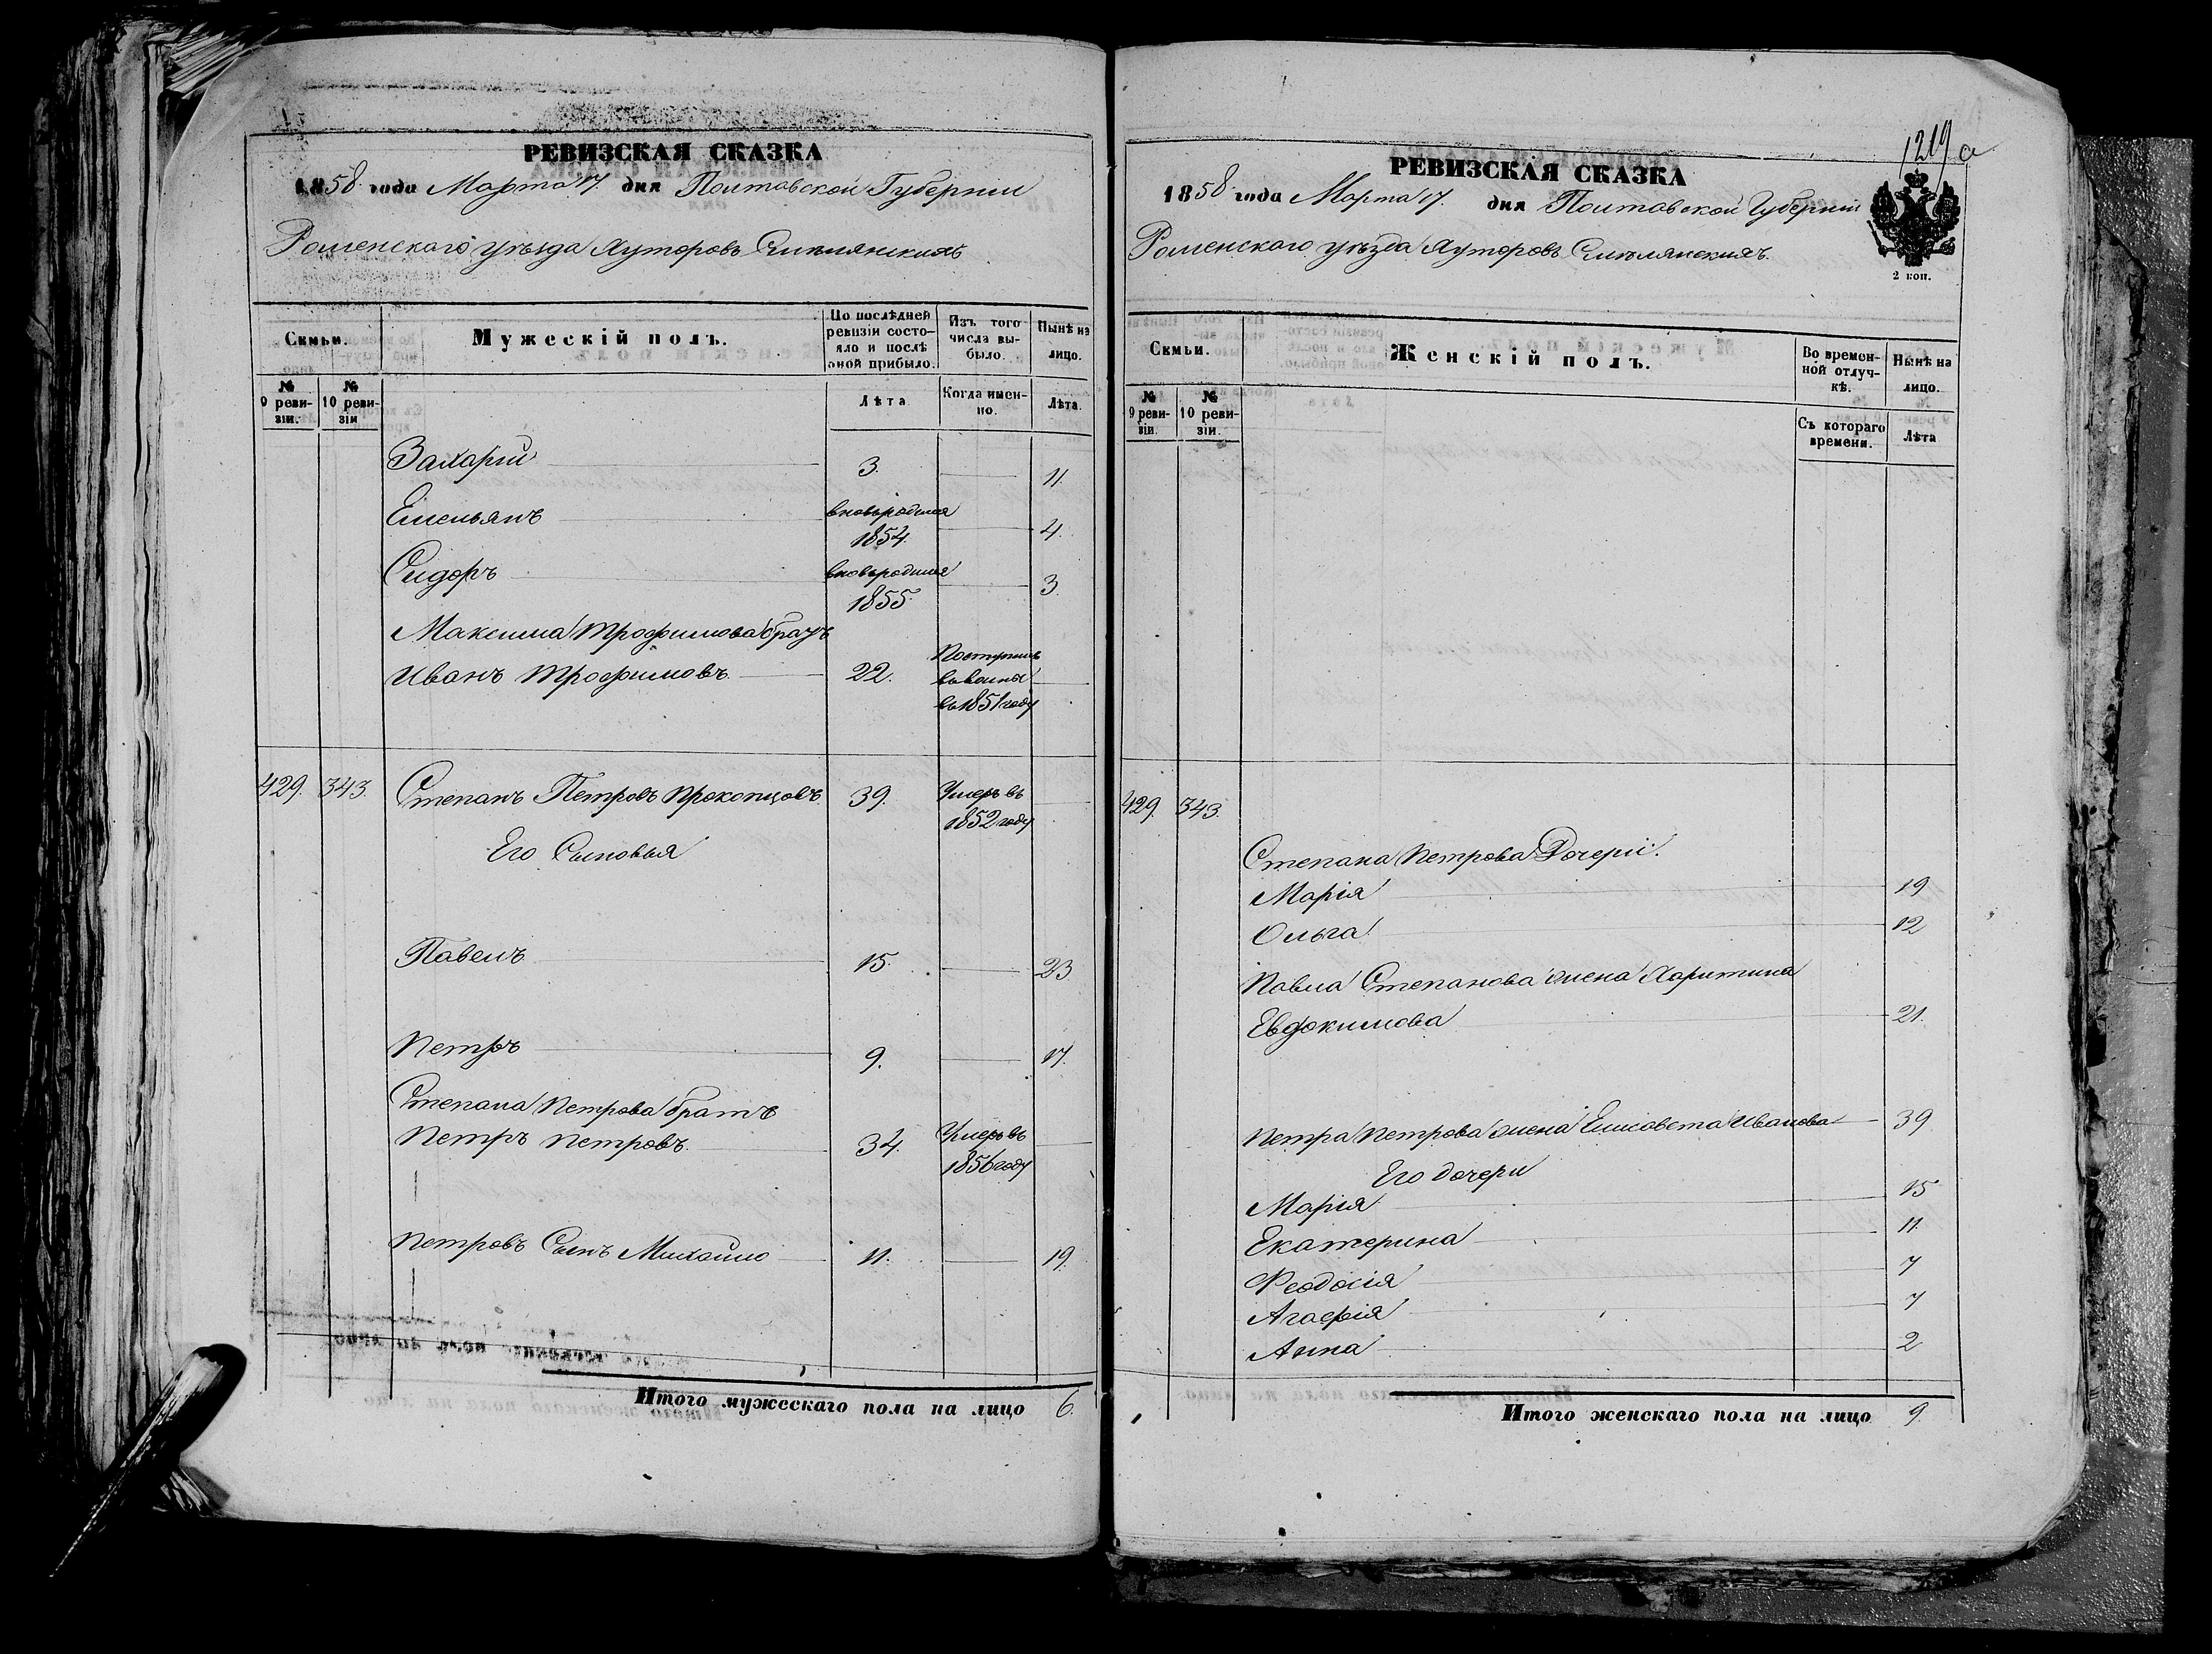 РЕВИЗСКАЯ СКАЗКА
1858 года Марта 17. дня Полтавской Губернии
Роменскаго уѣзда Хуторовъ Смѣлянскихъ
Семьи.
Мужескій полъ.
По послѣдней ревизіи состояло и послѣ оной прибыло.
Изъ того числа выбыло.
Нынѣ на лицо.
№ 9 ревизіи.
№ 10 ревизіи
Лѣта
Когда именно.
Лѣта.
Захарій 3. 11.
Емельянъ вновьродился 1854. 4.
Сидоръ вновьродился 1855. 3.
Максима Трофимова братъ
Иванъ Трофимовъ. 22. Поступилъ въ воины въ 1851 году
429. 343. Степанъ Петровъ Прокопцовъ 39. Умеръ въ 1852 году
Его Сыновья
Павелъ 15. 23.
Петръ 9. 17.
Степана Петрова братъ
Петръ Петровъ. 34. Умеръ въ 1856 году
Петровъ Сынъ Михайло 11. 19.
Итого мужескаго пола на лицо 6.
1219 а
РЕВИЗСКАЯ СКАЗКА
1858 года Марта 17. дня Полтавской Губерніи
Роменскаго уѣзда Хуторовъ Смѣлянскихъ.
2 коп.
Семьи.
Женскій полъ.
Во временной отлучкѣ.
Нынѣ на лицо.
№ 9 ревизіи.
№ 10 ревизіи.
Съ котораго времени.
Лѣта
429. 343.
Степана Петрова Дочери.
Марія 19
Ольга 12
Павла Степанова жена Харитина
Евдокимова 21.
Петра Петрова жена Елисавета Иванова 39
Его дочери
Марія 15
Екатерина 11.
Феодосія 7
Агафія 7
Анна 2
Итого женскаго пола на лицо 9.